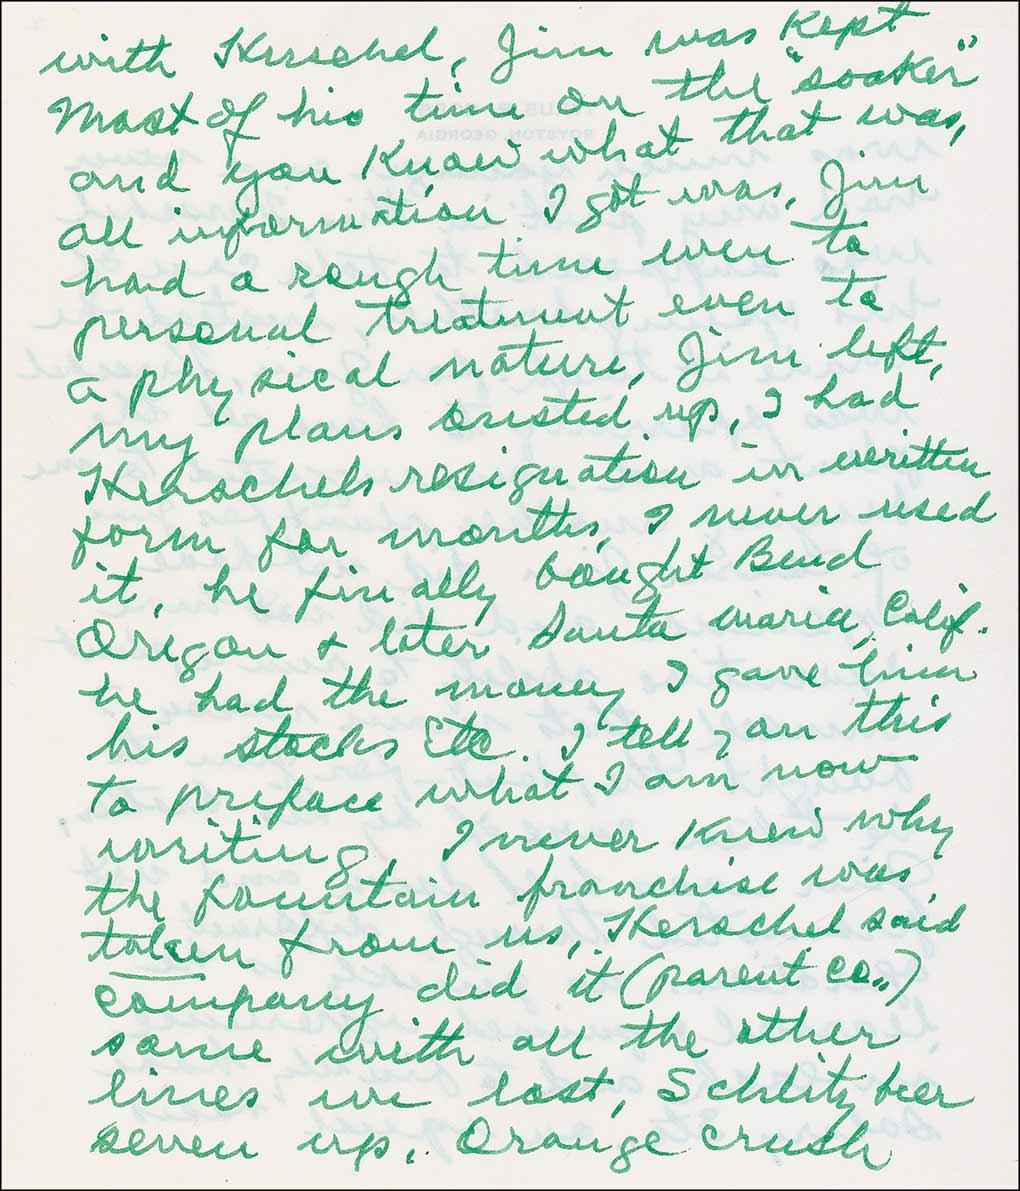 with Herschel, Jim was kept
most of his time on the "soaker"
and you know what that was,
all information I got was, Jim
had a rough time even to
personal treatment even to
a physical nature, Jim left,
my plans busted up, I had
Herschels resignation in written
form for months, I never used
it, he finally bought Bend
Origon & later Santa maria, Calif.
he had the money I gave him
his stocks Etc I tell you this
to preface what I am now
writing, I never knew why
the fountain franchise was
taken from us, Herschel said
company did it (parent co.,)
same with all the other
lines we lost, Schlitz beer
seven up, Orange Crush